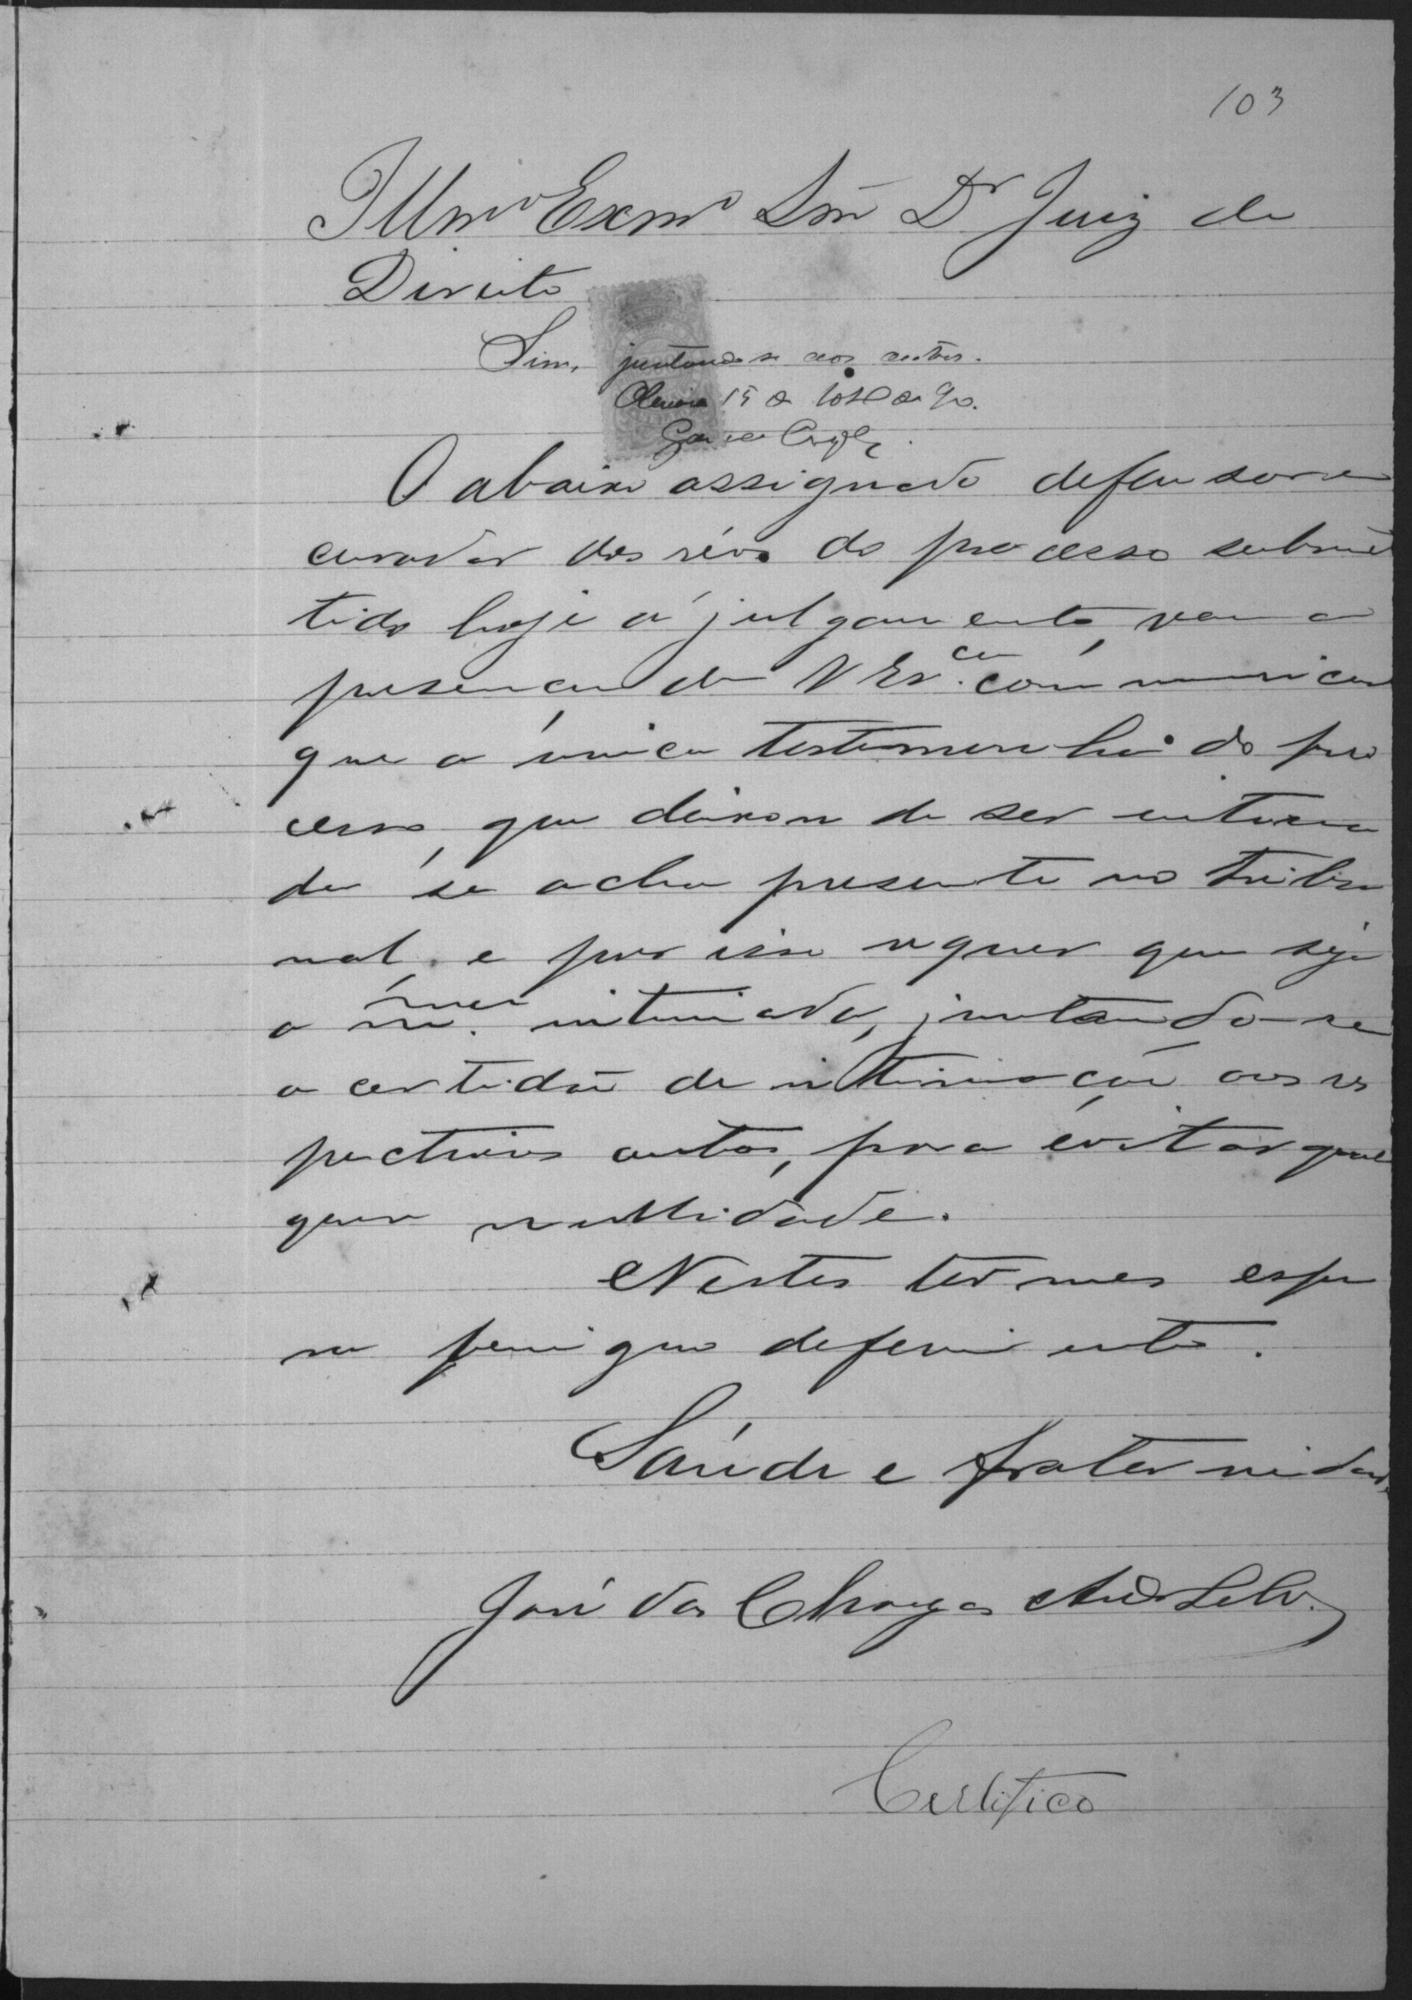 103
Illmo Exmo Snr Dr Juiz de
Direito
Sim, juntando se aos autos.
15 de de 90.
O abaixo assignado defensor e
curador dos réos do processo submet
tido hoje a julgamento, vem a
presença de V Exª. communicar
que a única testemunha do pro
cesso, que deixou de ser intima
da se acha presente no tribu
nal, e por isso requer que seja
a mma. intimada, juntando-se
a certidão de intimação aos res
pectivos autos, para evitar qual
quer nullidade.
Nestes termos espe
ra benigno deferimento.
Saúde e fraternidade
José das Chagas
Certifico